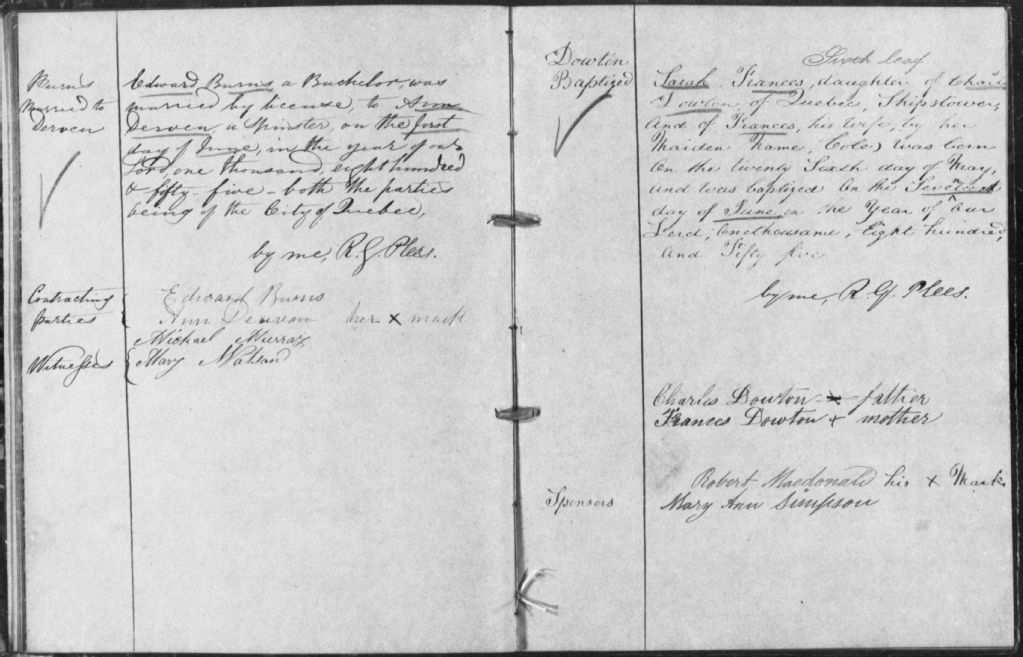 Burns
Married to
Derven
Edward Burns a Bachelor, was
married by license to Ann
Derven, a Spinster, on the first
day of June, in the year of our
Lord, one thousand, eight hundred
& fifty five - both the parties
being of the City of Quebec,
by me, R. G. Plees.
Contracting
parties
Edward Burns
Ann Dervan her x mark
Michael Murray
Witnesses
Mary Watson
Sixth leaf
Dowton
Baptized
Sarah Frances, daughter of Charles
Dowton, of Quebec, Shipstower,
And of Frances, his wife, by her
Maiden Name, Cole, was born
On the twenty Sixth day of May,
and was baptized On the
day of June, in the Year of Our
Lord, One thousand, Eight hundred,
And Fifty five
by me, R. G. Plees.
Charles Dowton - x - father
Frances Dowton x mother
Robert Macdonald his x Mark
Sponsors
Mary Ann Simpson